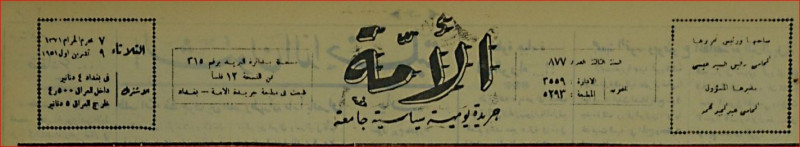 صاحبها ورئيس تحريرها
المحامي
مديرها المسؤول
المحامي
السنة الثالثة العدد ٨٧٧
تلفون
الادارة : ٣٥٥٩
المطبعة : ٥٢٩٣
الأمة
جريدة يومية سياسية جامعة
مسجلة بدائرة البريد برقم ٣١٥
ثمن النسخة ١٢ فلساً
طبعت في مطبعة جريدة الامة - بغداد
الثلاثاء
٧ محرم الحرام ١٣٧١
٩ تشرين اول ١٩٥١
الاشتراك
في بغداد ٤ دنانير
داخل العراق ٤٫٥٠٠
خارج العراق ٥ دنانير